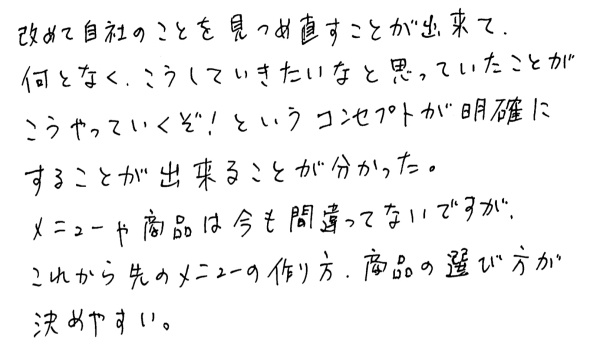 改めて自社のことを見つめ直すことが出来て、
何となく、こうしていきたいなと思っていたことが
こうやっていくぞ！というコンセプトが明確に
することが出来ることが分かった。
メニューや商品は今も間違ってないですが、
これから先のメニューの作り方、商品の選び方が
決めやすい。